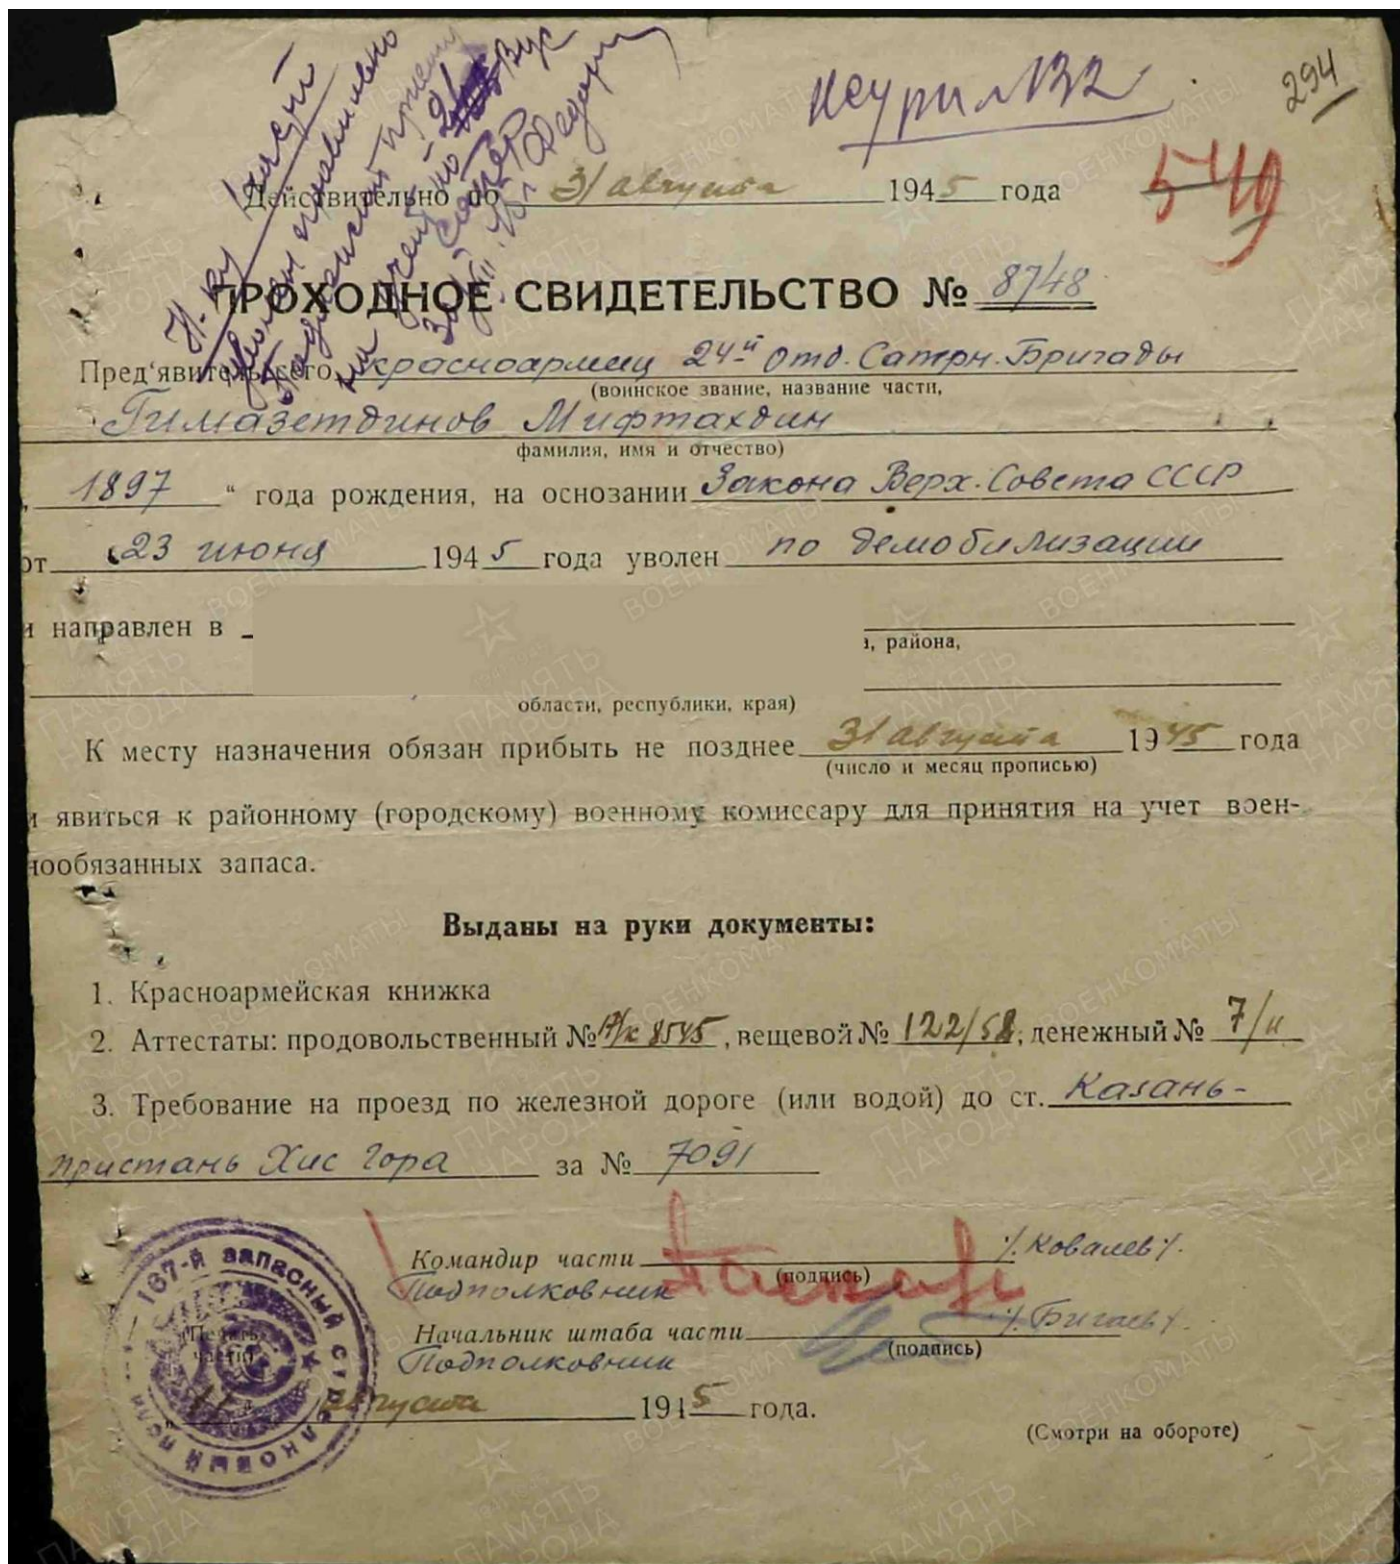 294
549
Действительно до 31 августа 1945 года
ПРОХОДНОЕ СВИДЕТЕЛЬСТВО № 8748
Пред'явитель сего, красноармеец 24й отд.
Бригады
(воинское звание, название части,
Гимазетдинов Мифтахдин
фамилия, имя и отчество)
1897 “ года рождения, на основании Закона Верх. Совета СССР
от 23 июня 1945 года уволен по демобилизации
и направлен в
, района,
области, республики, края)
К месту назначения обязан прибыть не позднее 31 августа 1945 года
(число и месяц прописью)
и явиться к районному (городскому) военному комиссару для принятия на учет воен-
нообязанных запаса.
Выданы на руки документы:
1. Красноармейская книжка
2. Аттестаты: продовольственный № 8545, вещевой № 122/58, денежный № 7/и
3. Требование на проезд по железной дороге (или водой) до ст. Казань-
пристань Хис Гора за № 7091
Командир части /. Ковалев /.
(подпись)
Подполковник
Начальник штаба части /. Бигаев /.
(подпись)
Подполковник
Печать части
167-й запасный стрелковый полк
августа 1945 года.
(Смотри на обороте)
ПАМЯТЬ НАРОДА
ВОЕНКОМАТЫ